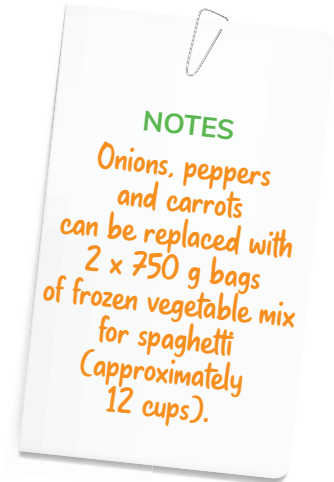 NOTES
Onions, peppers
and carrots
can be replaced with
2 x 750 g bags
of frozen vegetable mix
for spaghetti
(approximately
12 cups).